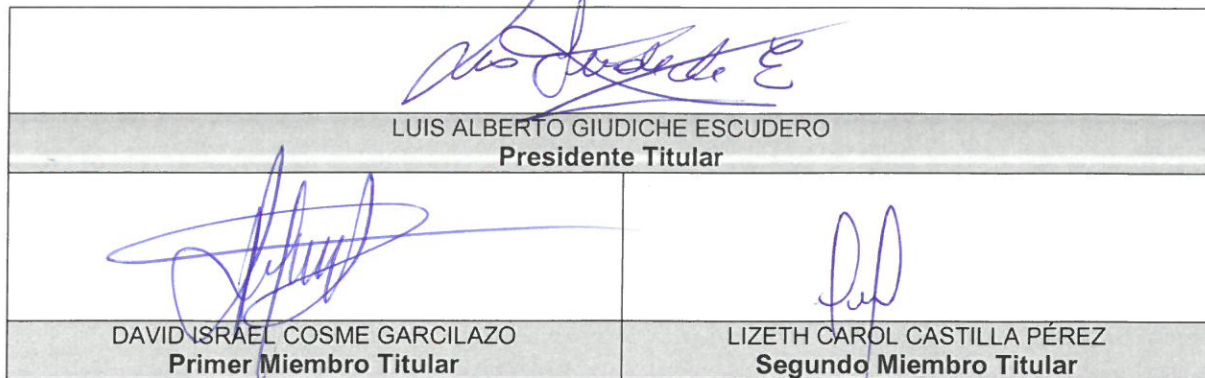 LUIS ALBERTO GIUDICHE ESCUDERO
Presidente Titular
DAVID ISRAEL COSME GARCILAZO
Primer Miembro Titular
LIZETH CAROL CASTILLA PÉREZ
Segundo Miembro Titular